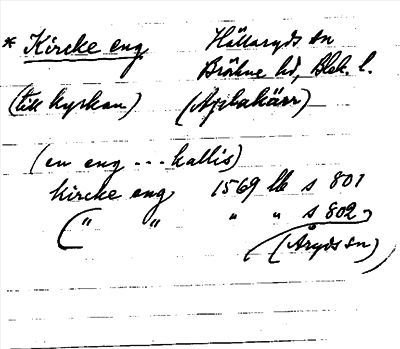 * Kircke eng Hällaryds sn
Bräkne hd, Blek. l.
(till kyrkan) (Åryd)
(en eng ... kallis)
kircke eng 1569 lb s 801
( " " " " s 802)
(Åryds sn)